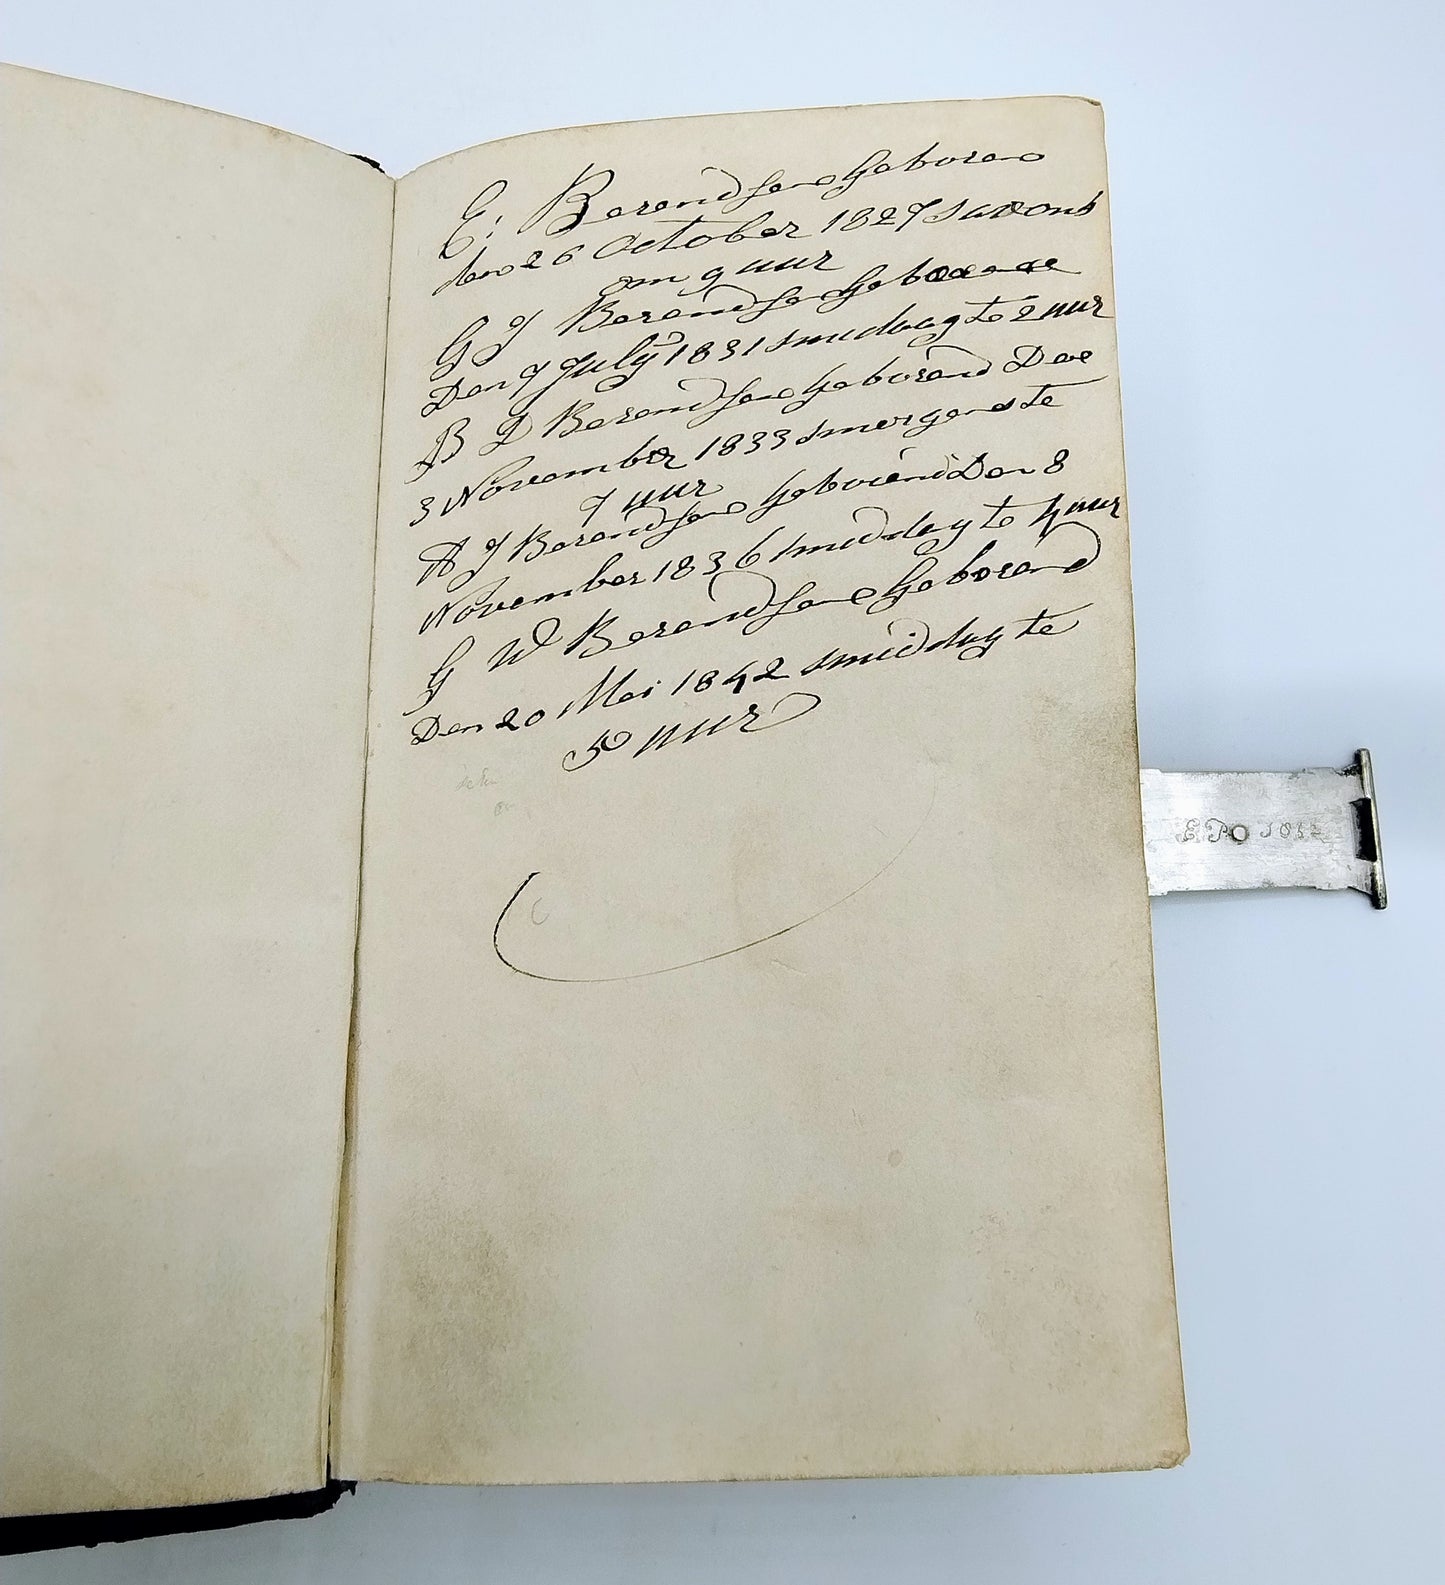 E: Berendsen Geboren
den 26 October 1827 s avonds
om 9 uur
G J Berendsen Geboren
Den 7 July 1831 smiddag te 2 uur
B D Berendsen Geborend Den
3 November 1833 smorgens te
7 uur
H J Berendsen Geborend Den 8
November 1836 smiddag te 4 uur
G W Berendsen Geborend
Den 20 Mei 1842 smiddag te
5 uur
E P O 1852